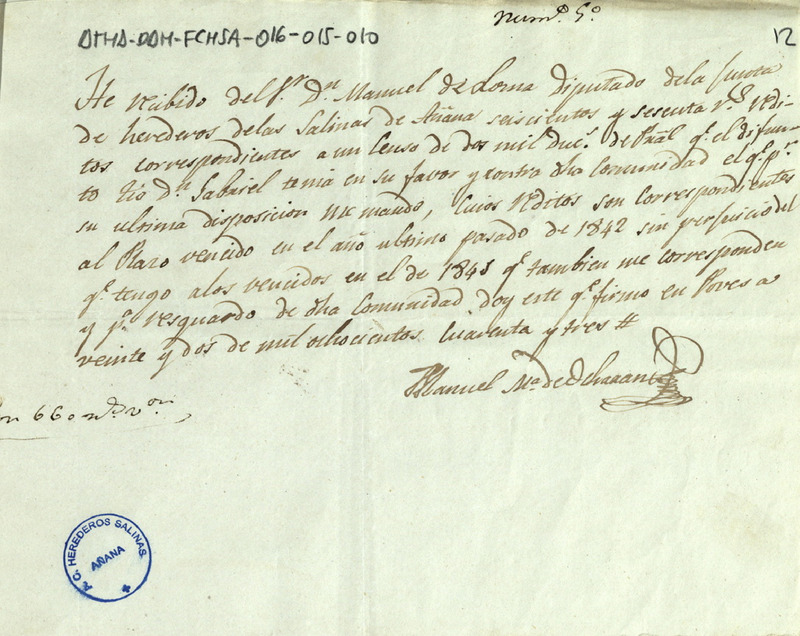 Num.º 5.º
ATHA-DAH-FCHSA-016-015-010
12
He recibido del S.r D.n Manuel de Loma Diputado dela Junta
de herederos delas Salinas de Añana seiscientos y sesenta r.s redi-
tos correspondientes a un Censo de dos mil Duc.s de Pral q.e el difun-
to tio D.n Gabriel tenia en su favor y contra dha Comunidad el q.e p.r
su ultima disposicion me mando, cuios reditos son correspondientes
al Plazo vencido en el año ultimo pasado de 1842 sin perjuicio del
q.e tengo alos vencidos en el de 1841 q.e tambien me corresponden
y p.a resguardo de dha Comunidad doy este q.e firmo en Poves a
veinte y dos de mil ochocientos cuarenta y tres #
Manuel M.a de
on 660 r.s v.on
F. C. HEREDEROS SALINAS.
AÑANA